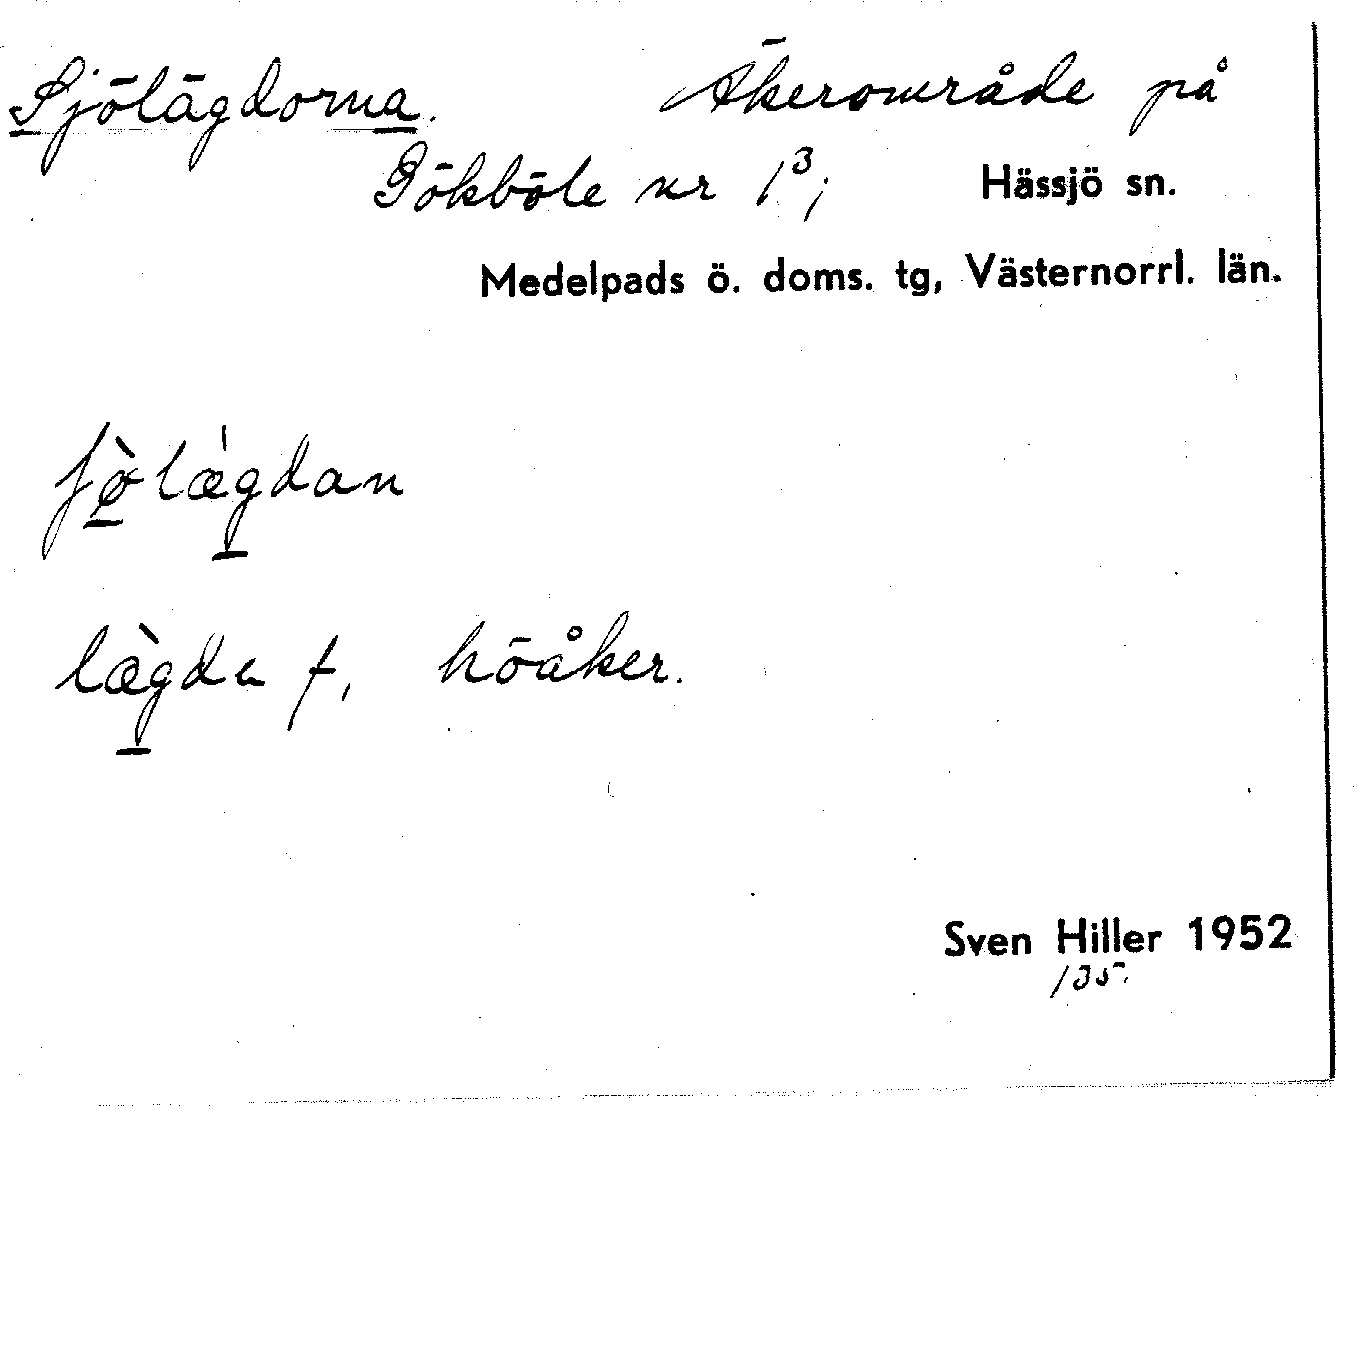 Sjölägdorna. Åkerområde på
Gökböle nr 1³; Hässjö sn.
Medelpads ö. doms. tg, Västernorrl. län.
ʃø̀lǽgdan
læ̀gda f, höåker.
Sven Hiller 1952
135.